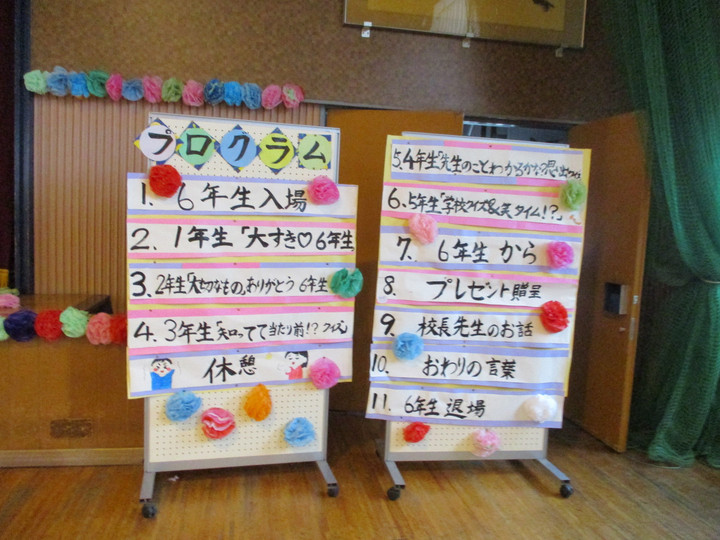 プログラム
1. 6年生入場
2. 1年生「大すき♡6年生」
3. 2年生「大切なもの。ありがとう 6年生」
4. 3年生「知ってて当たり前!? クイズ」
休憩
5. 4年生「先生のことわかるかな?思い出クイズ
6. 5年生「学校クイズ&笑タイム!?」
7. 6年生 から
8. プレゼント贈呈
9. 校長先生のお話
10. おわりの言葉
11. 6年生 退場